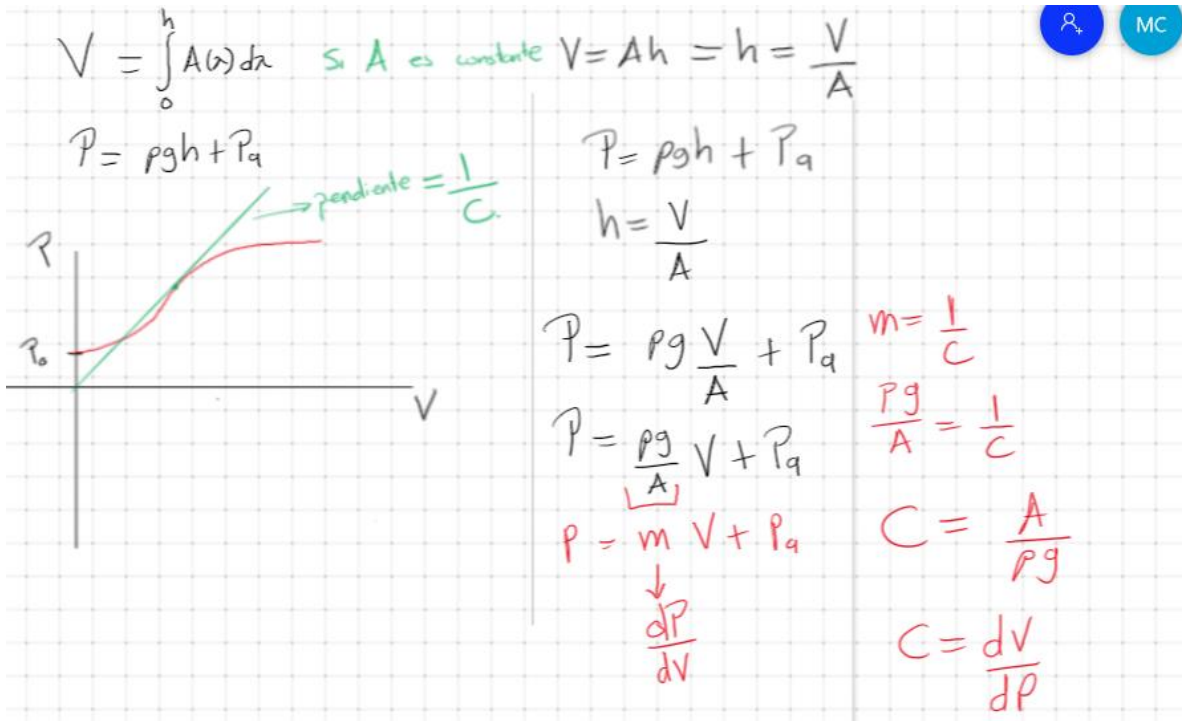 MC
V = ∫₀ʰ A(x)dx Si A es constante V = Ah = h = V/A
P = ρgh + Pa
pendiente = 1/C
P
P₀
V
P = ρgh + Pa
h = V/A
P = ρg V/A + Pa
P = ρg/A V + Pa
P = m V + Pa
dP/dV
m = 1/C
ρg/A = 1/C
C = A/ρg
C = dV/dP